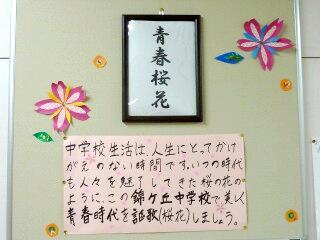 青春桜花
中学校生活は、人生にとってかけ
がえのない時間です。いつの時代
も人々を魅了してきた桜の花の
ように、この錦ケ丘中学校で美しく
青春時代を謳歌(桜花)しましょう。